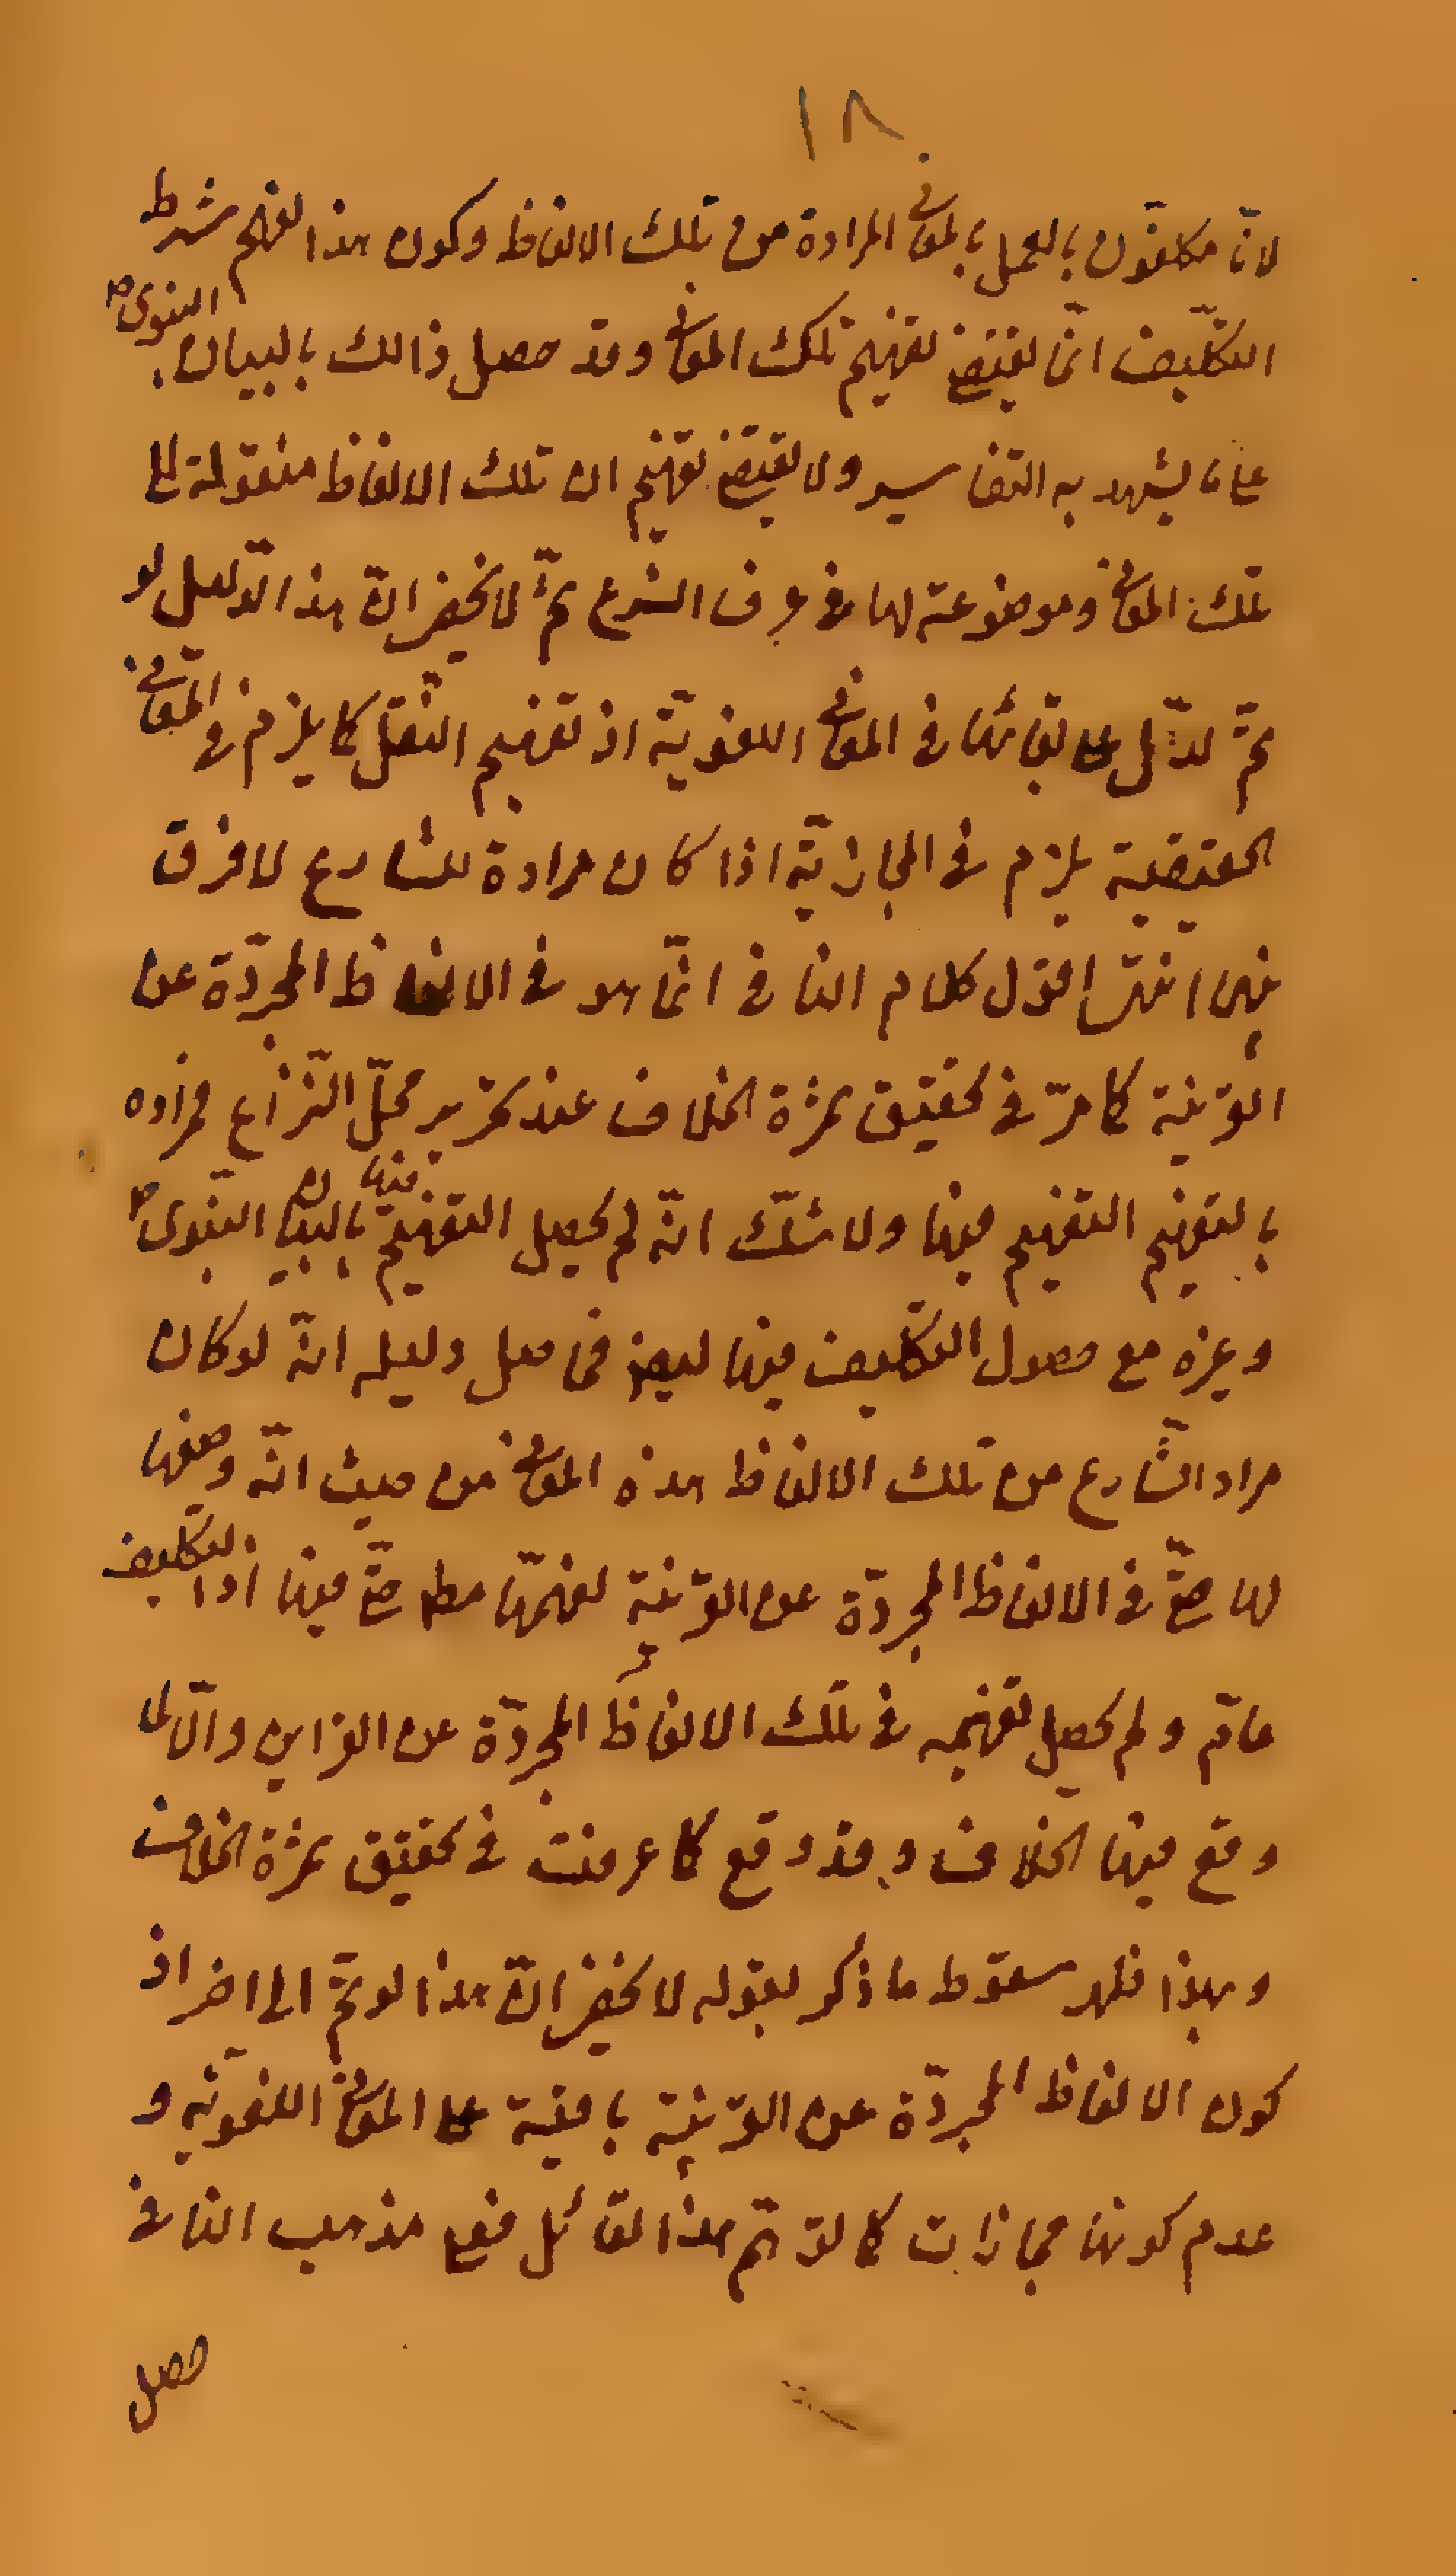 ١٨
لانّا مكلفون بالعمل بالمعانى المرادة من تلك الالفاظ وكون هذا الفهم شرط
التكليف انّما يقتضى تفهيم تلك المعانى وقد حصل ذالك بالبيان النبوى ص
على ما يشهد به التفاسير ولا يقتضى تفهيم ان تلك الالفاظ منقولة الى
تلك المعانى وموضوعة لها فى عرف الشرع ثمّ لا يخفى انّ هذا الدّليل لو
تمّ لدلّ على بقائها فى المعانى اللغويّة اذ تفهيم النّقل كما يلزم فى المعانى
الحقيقية يلزم فى المجازيّة اذا كان مرادة للشارع لا فرق
بينهما انتهى اقول كلام النافى انّما هو فى الالفاظ المجرّدة عن
القرينة كما مرّ فى تحقيق ثمرة الخلاف عند تحرير محلّ النّزاع فمراده
بالتفهيم التفهيم فيها ولا شكّ انّه لم يحصل التفهيم فيها بالبيان النبوى ص
وغيره مع حصول التكليف فيها ايضا فحاصل دليله انّه لو كان
مراد الشّارع من تلك الالفاظ هذه المعانى من حيث انّه وضعها
لها حتّى فى الالفاظ المجرّدة عن القرينة لفهمّها مطلقا حتّى فيها اذ التكليف
عامّ ولم يحصل تفهيمه فى تلك الالفاظ المجرّدة عن القراين والّا لما
وقع فيها الخلاف وقد وقع كما عرفت فى تحقيق ثمرة الخلاف
وبهذا ظهر سقوط ما ذكر بقوله لا يخفى انّ هذا لو تمّ الى اخر اذ
كون الالفاظ المجرّدة عن القرينة باقية على المعانى اللغويّه و
عدم كونها مجازات كما توهّم هذا القائل فهو مذهب النافى
حصل